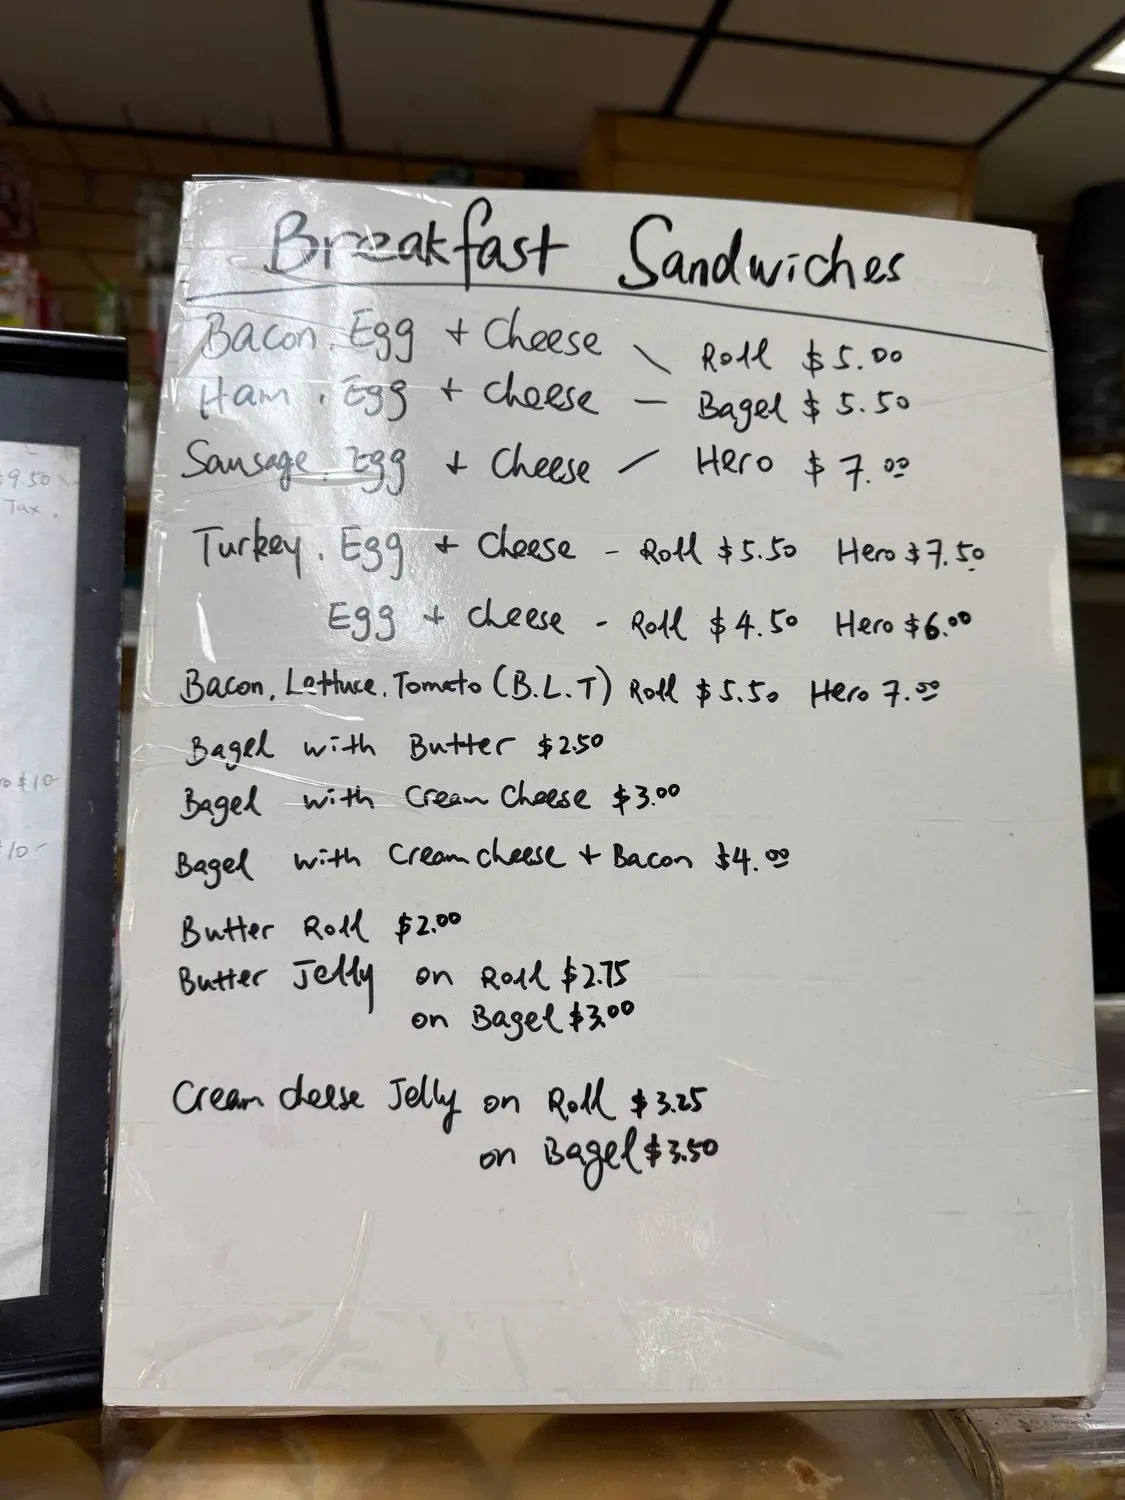 Breakfast Sandwiches
Bacon, Egg + Cheese \ Roll $5.00
Ham, Egg + Cheese — Bagel $5.50
Sausage, Egg + Cheese / Hero $7.00
Turkey, Egg + Cheese - Roll $5.50 Hero $7.50
Egg + Cheese - Roll $4.50 Hero $6.00
Bacon, Lettuce, Tomato (B.L.T) Roll $5.50 Hero 7.00
Bagel with Butter $2.50
Bagel with Cream Cheese $3.00
Bagel with Cream cheese + Bacon $4.00
Butter Roll $2.00
Butter Jelly on Roll $2.75
on Bagel $3.00
Cream cheese Jelly on Roll $3.25
on Bagel $3.50
9.50
Tax.
$10-
10-